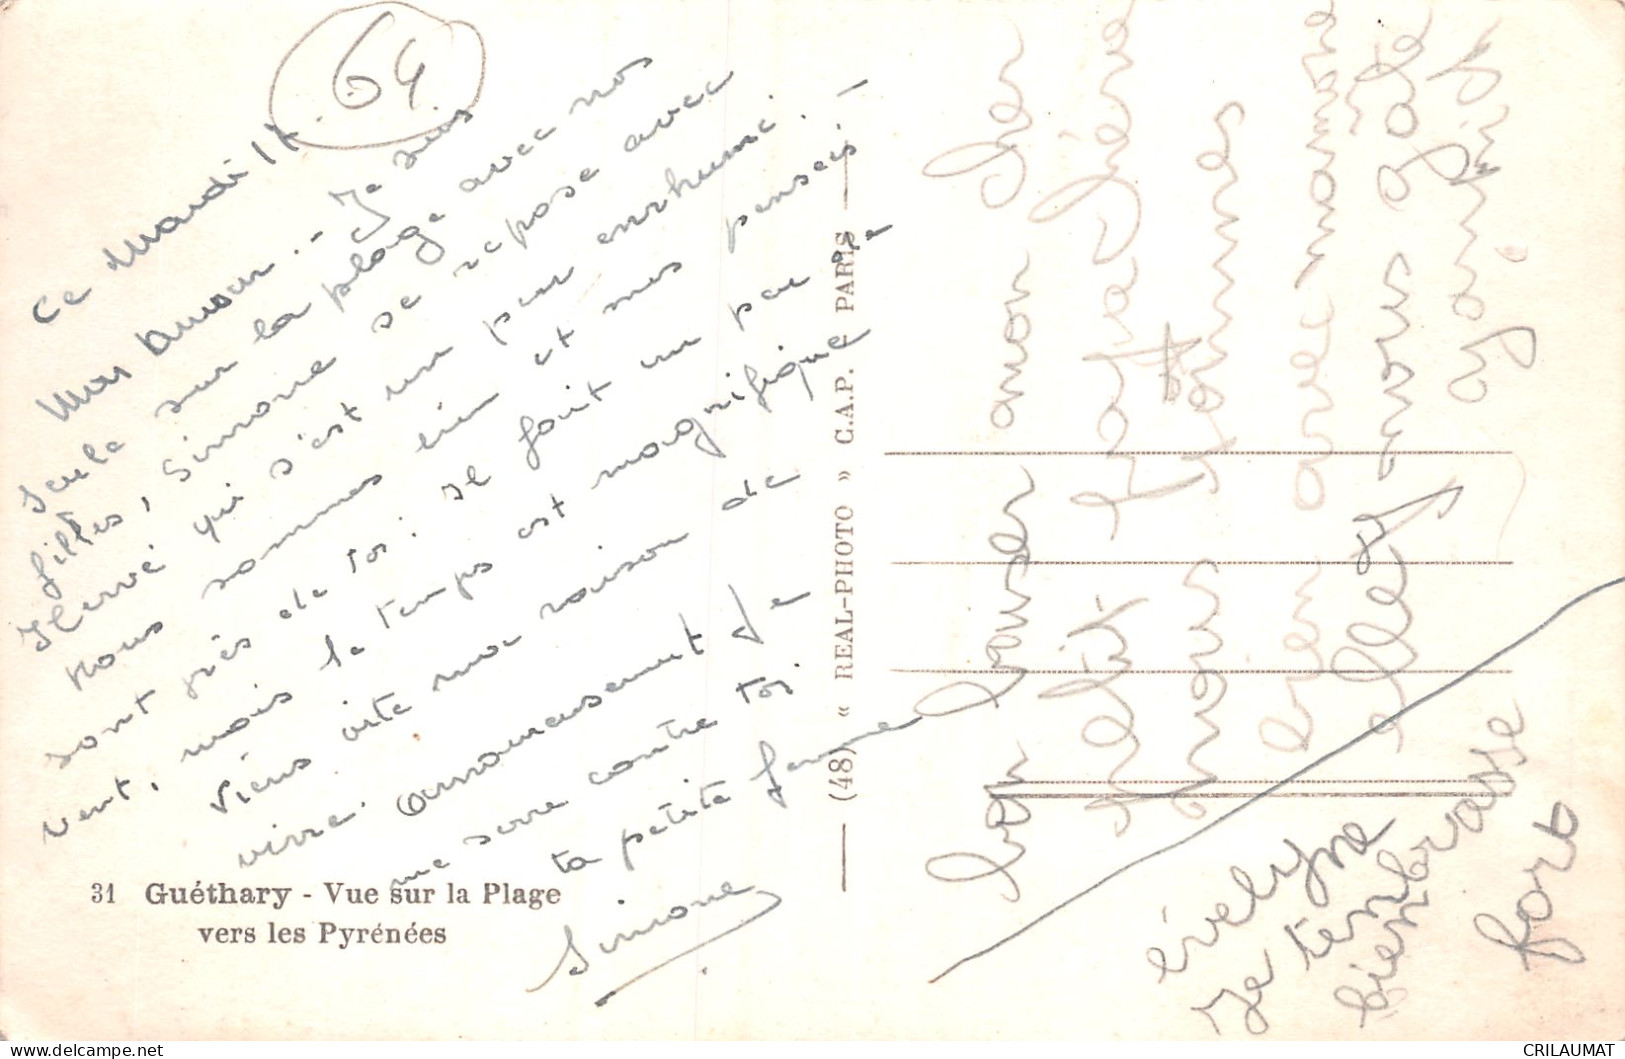 64
Ce Mardi 14
Mon Amour. - Je suis
seule sur la plage avec nos
filles, Simone se repose avec
Hervé qui s'est un peu enrhumé. -
Nous sommes bien et mes pensées
sont près de toi. Il fait un peu de
vent, mais le temps est magnifique
Viens vite ma raison de
vivre. amoureusement Je
me serre contre toi
ta petite femme
Simone
31 Guéthary - Vue sur la Plage
vers les Pyrénées
(48) « REAL-PHOTO » C.A.P. PARIS
bon baiser mon
nous sommes
bien avec mamans
elle nous gate
évelyne
Je tenbrasse
bien
fort
CRILAUMAT